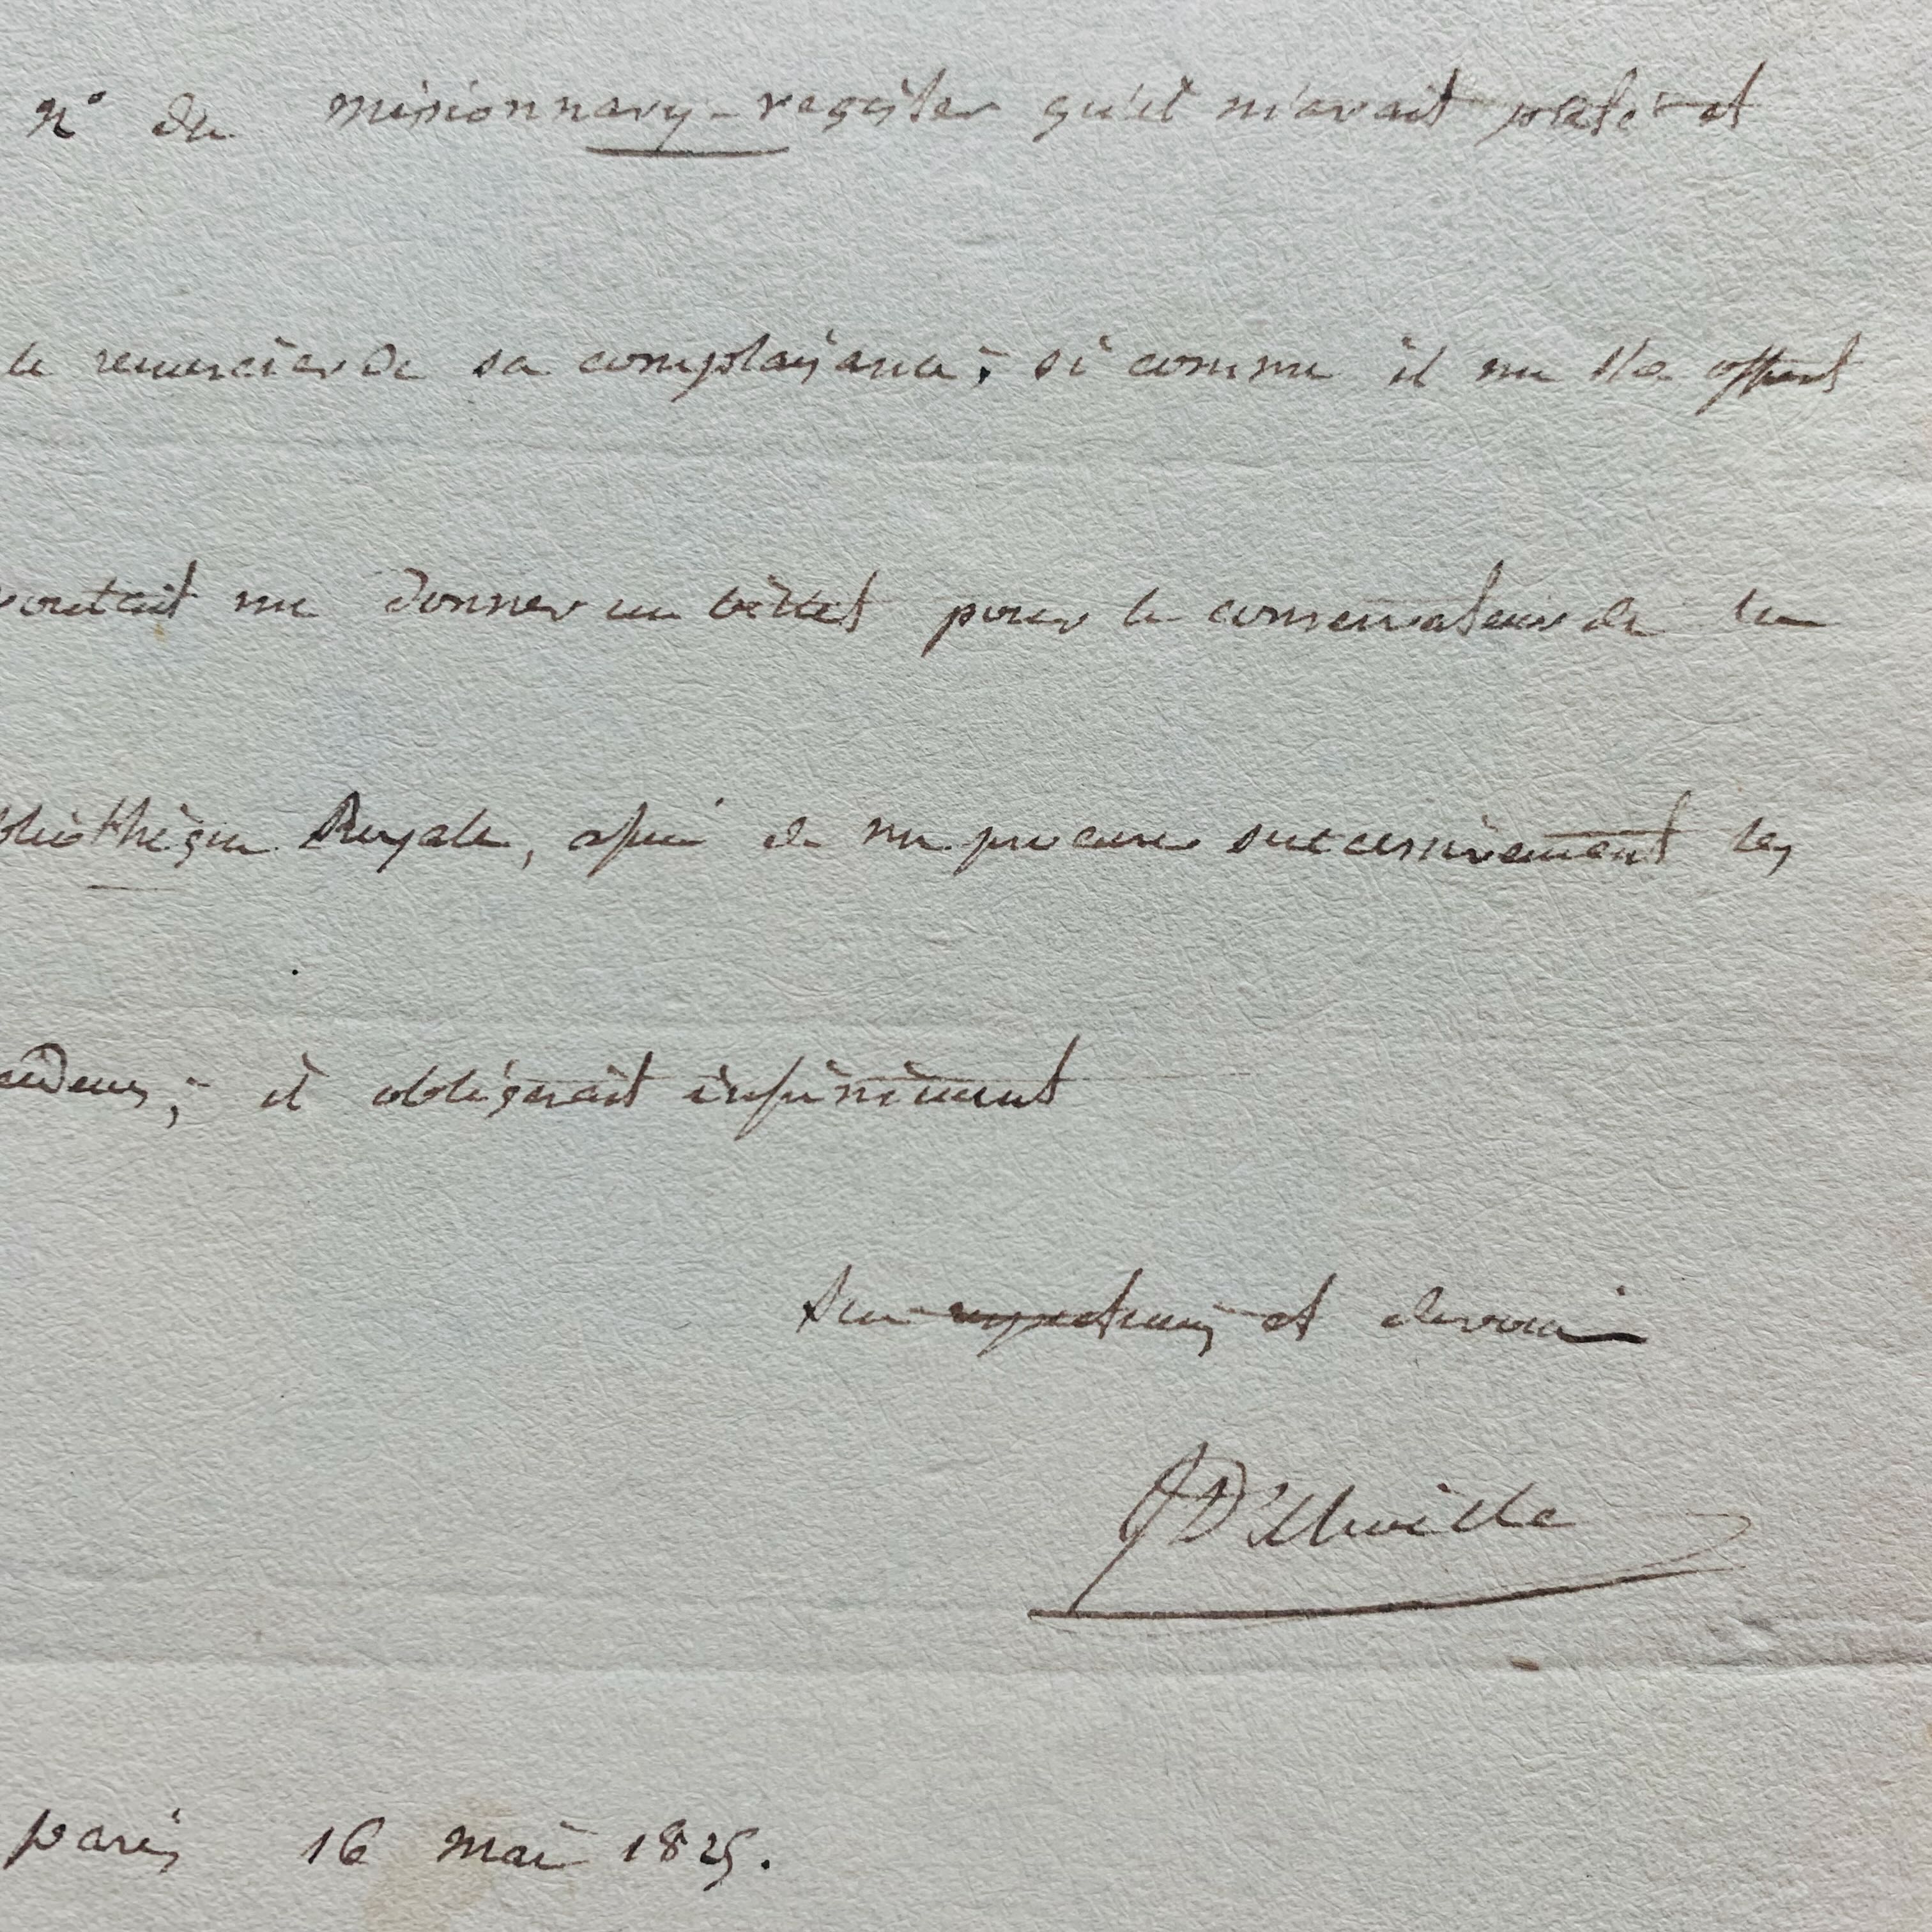 n° du missionnary-register qu'il m'avait prêté et
le remercier de sa complaisance; si comme il me l'a offert
voulait me donner un billet pour le conservateur de la
bliothèque Royale, afin de me procurer successivement les
; il obligerait infiniment
Son respectueux et dévoué
J D'Urville
paris 16 mai 1825.